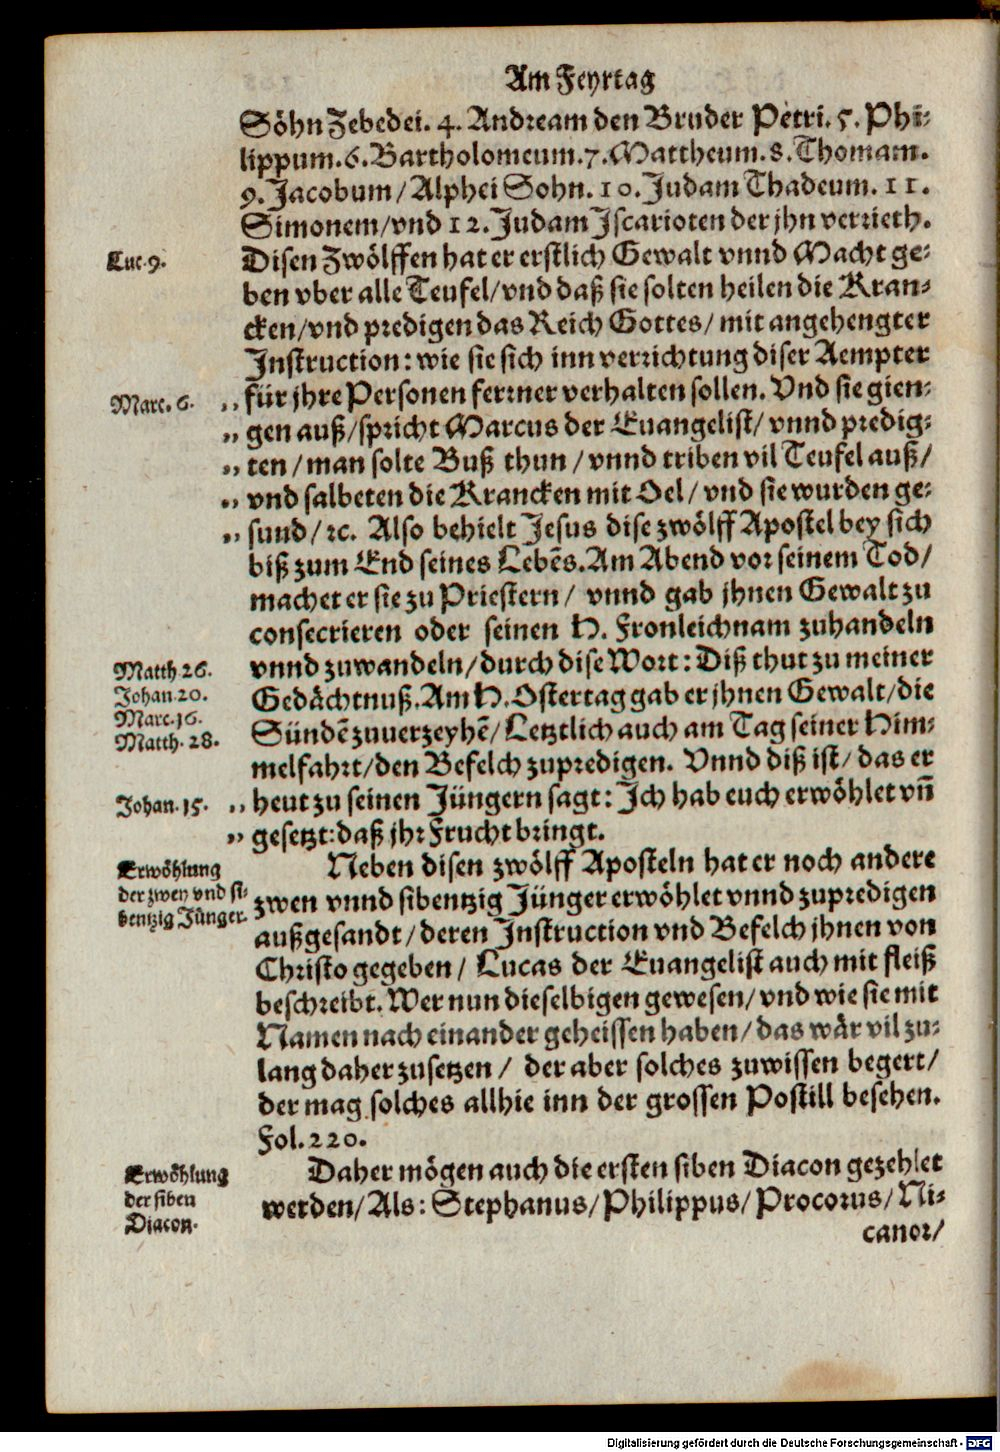 Am Feyrtag
Söhn Zebedei. 4. Andream den Bruder Petri. 5. Phi-
lippum. 6. Bartholomeum. 7. Mattheum. 8. Thomam.
9. Jacobum / Alphei Sohn. 10. Judam Thadeum. 11.
Simonem / vnd 12. Judam Jscarioten der jhn verrieth.
Luc. 9.
Disen Zwölffen hat er erstlich Gewalt vnnd Macht ge-
ben vber alle Teufel / vnd daß sie solten heilen die Kran-
cken / vnd predigen das Reich Gottes / mit angehengter
Jnstruction: wie sie sich inn verrichtung diser Aempter
Marc. 6.
„ für jhre Personen ferrner verhalten sollen. Vnd sie gien-
„ gen auß / spricht Marcus der Euangelist / vnnd predig-
„ ten / man solte Buß thun / vnnd triben vil Teufel auß /
„ vnd salbeten die Krancken mit Oel / vnd sie wurden ge-
„ sund / ꝛc. Also behielt Jesus dise zwölff Apostel bey sich
biß zum End seines Lebẽs. Am Abend vor seinem Tod /
machet er sie zu Priestern / vnnd gab jhnen Gewalt zu
consecrieren oder seinen H. Fronleichnam zuhandeln
Matth. 26.
vnnd zuwandeln / durch dise Wort: Diß thut zu meiner
Johan. 20.
Gedächtnuß. Am H. Ostertag gab er jhnen Gewalt / die
Marc. 16.
Sündẽ zuuerzeyhẽ / Letztlich auch am Tag seiner Him-
Matth. 28.
melfahrt / den Befelch zupredigen. Vnnd diß ist / das er
Johan. 15.
„ heut zu seinen Jüngern sagt: Jch hab euch erwöhlet vñ
„ gesetzt: daß jhr Frucht bringt.
Erwöhlung
der zwey vnd si-
bentzig Jünger.
Neben disen zwölff Aposteln hat er noch andere
zwen vnnd sibentzig Jünger erwöhlet vnnd zupredigen
außgesandt / deren Jnstruction vnd Befelch jhnen von
Christo gegeben / Lucas der Euangelist auch mit fleiß
beschreibt. Wer nun dieselbigen gewesen / vnd wie sie mit
Namen nach einander geheissen haben / das wär vil zu-
lang daher zusetzen / der aber solches zuwissen begert /
der mag solches allhie inn der grossen Postill besehen.
Fol. 220.
Erwöhlung
der siben
Diacon.
Daher mögen auch die ersten siben Diacon gezehlet
werden / Als: Stephanus / Philippus / Procorus / Ni-
canor /
Digitalisierung gefördert durch die Deutsche Forschungsgemeinschaft - DFG